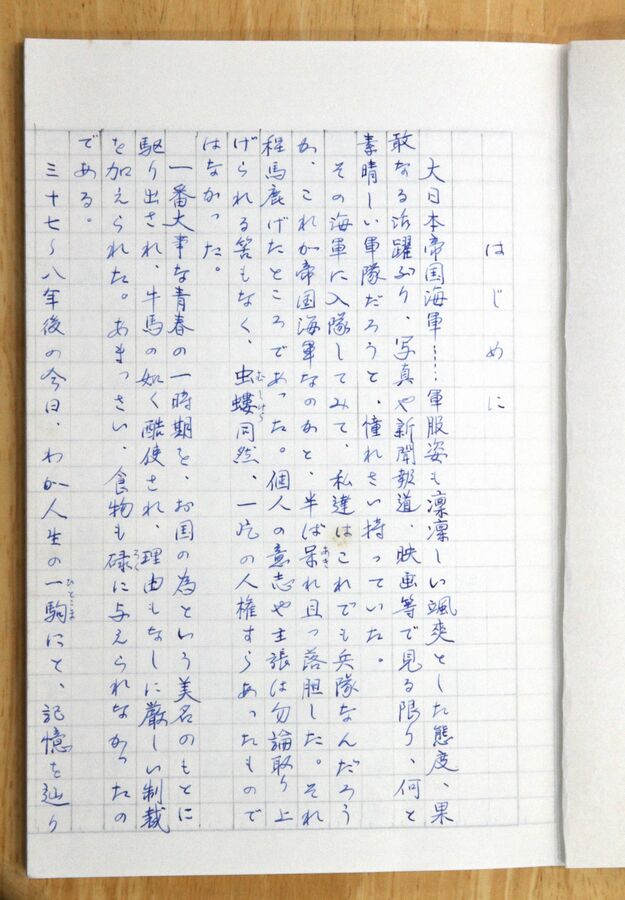 はじめに
大日本帝国海軍……軍服姿も凛凛しい颯爽とした態度、果
敢なる活躍ぶり、写真や新聞報道、映画等で見る限り、何と
素晴しい軍隊だろうと、憧れさい持っていた。
その海軍に入隊してみて、私達はこれでも兵隊なんだろう
か、これが帝国海軍なのかと、半ば呆れ且つ落胆した。それ
程馬鹿げたところであった。個人の意志や主張は勿論取り上
げられる筈もなく、虫螻同然、一片の人権すらあったもので
はなかった。
一番大事な青春の一時期を、お国の為という美名のもとに
駆り出され、牛馬の如く酷使され、理由もなしに厳しい制裁
を加えられた。あまっさい、食物も碌に与えられなかったの
である。
三十七〜八年後の今日、わが人生の一駒にと、記憶を辿り